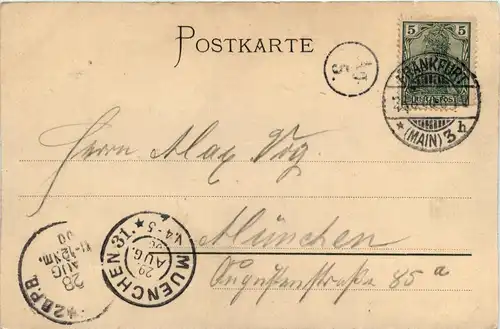 POSTKARTE
5 5
FRANKFURT
(MAIN) 3 b
Herrn Max Vog
München
Augustenstraße 85 a
MUENCHEN 31.
29
AUG.
V.4-5
28
AUG
00
2.B.P.B.